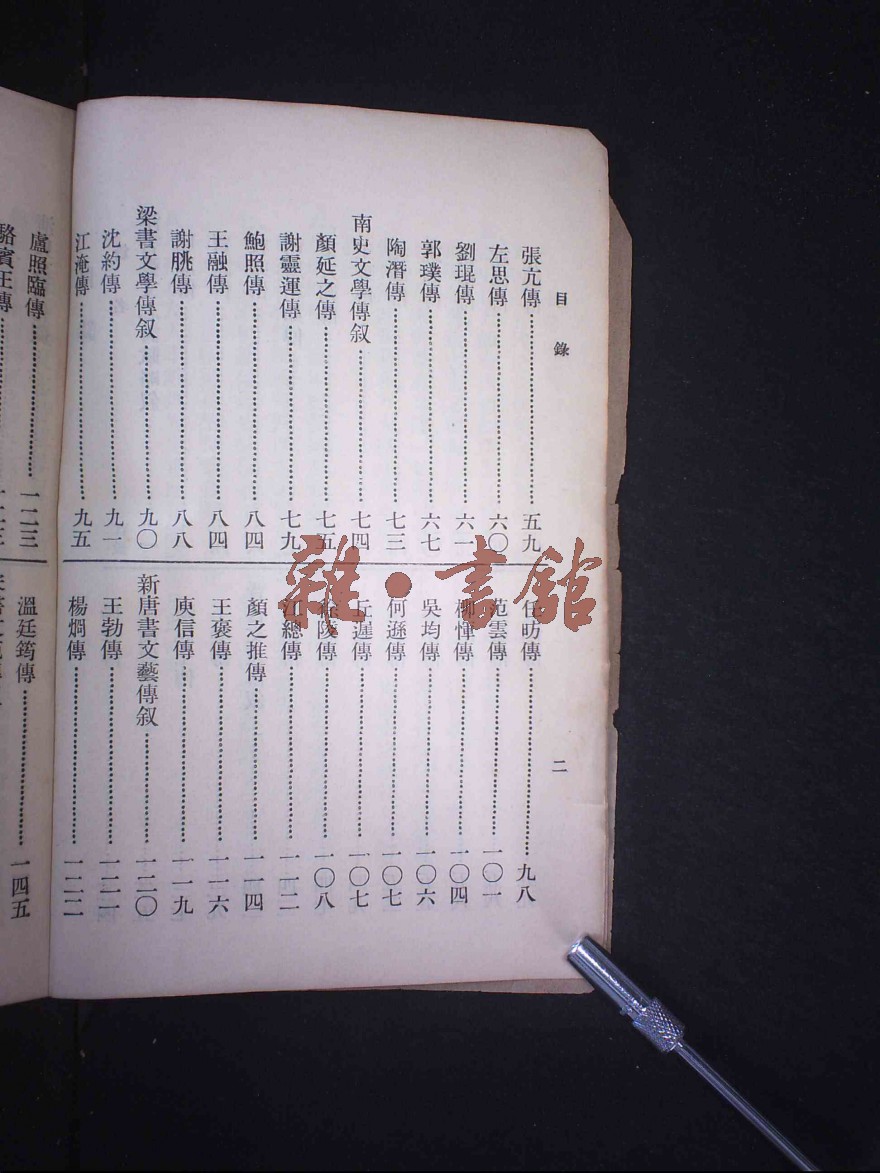 目錄
二
張亢傳……五九
左思傳……六〇
劉琨傳……六一
郭璞傳……六七
陶潛傳……七三
南史文學傳叙……七四
顏延之傳……七五
謝靈運傳……七九
鮑照傳……八四
王融傳……八四
謝朓傳……八八
梁書文學傳叙……九〇
沈約傳……九一
江淹傳……九五
任昉傳……九八
范雲傳……一〇一
柳惲傳……一〇四
吳均傳……一〇六
何遜傳……一〇七
丘遲傳……一〇七
徐陵傳……一〇八
江總傳……一一二
顏之推傳……一一四
王褒傳……一一六
庾信傳……一一九
新唐書文藝傳叙……一二〇
王勃傳……一二一
楊烱傳……一二二
盧照臨傳……一二三
駱賓王傳……一二三
溫廷筠傳……一四五
雜·書館